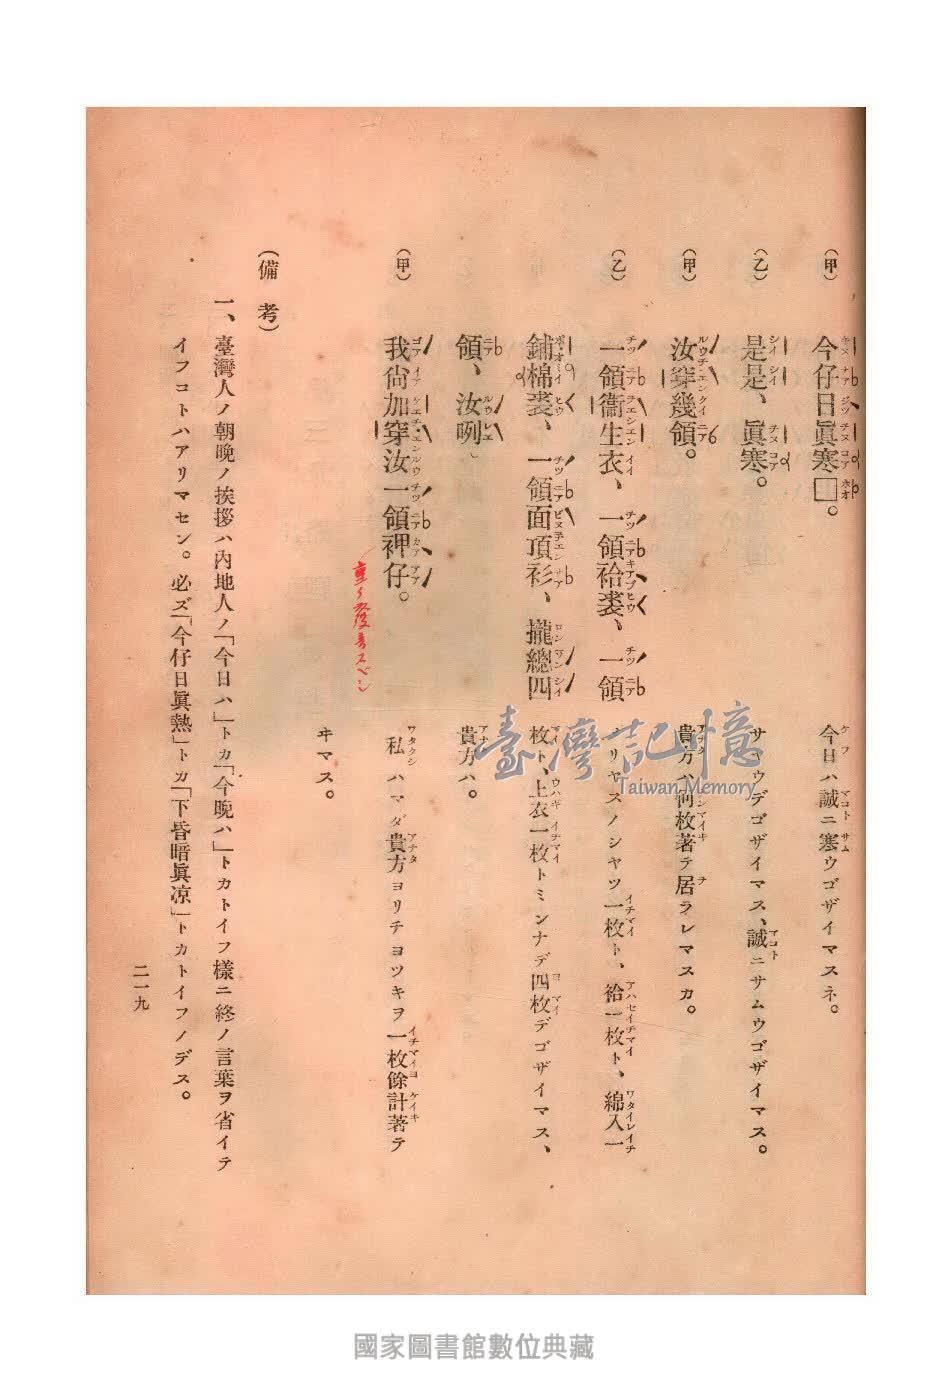 (甲) 今仔日眞寒□。 今日ハ誠ニ寒ウゴザイマスネ。
(乙) 是是、眞寒。 サヤウデゴザイマス、誠ニサムウゴザイマス。
(甲) 汝穿幾領。 貴方ハ何枚著テ居ラレマスカ。
(乙) 一領衞生衣、一領袷裘、一領 メリヤスノシヤツ一枚ト、袷一枚ト、綿入一
鋪棉裘、一領面頂衫、攏總四 枚ト、上衣一枚トミンナデ四枚デゴザイマス、
領、汝咧、 貴方ハ。
(甲) 我尙加穿汝一領裫仔。 私ハマダ貴方ヨリチヨツキヲ一枚餘計著テ
ヰマス。
(備考)
一、臺灣人ノ朝晚ノ挨拶ハ內地人ノ「今日ハ」トカ「今晚ハ」トカトイフ樣ニ終ノ言葉ヲ省イテ
イフコトハアリマセン。必ズ「今仔日眞熱」トカ「下昏暗眞凉」トカトイフノデス。
二一九
臺灣記憶
Taiwan Memory
國家圖書館數位典藏